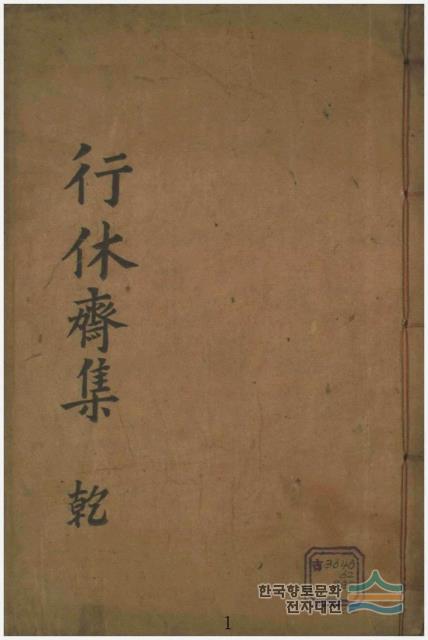 行休齋集 乾
古3640
한국향토문화
전자대전
1